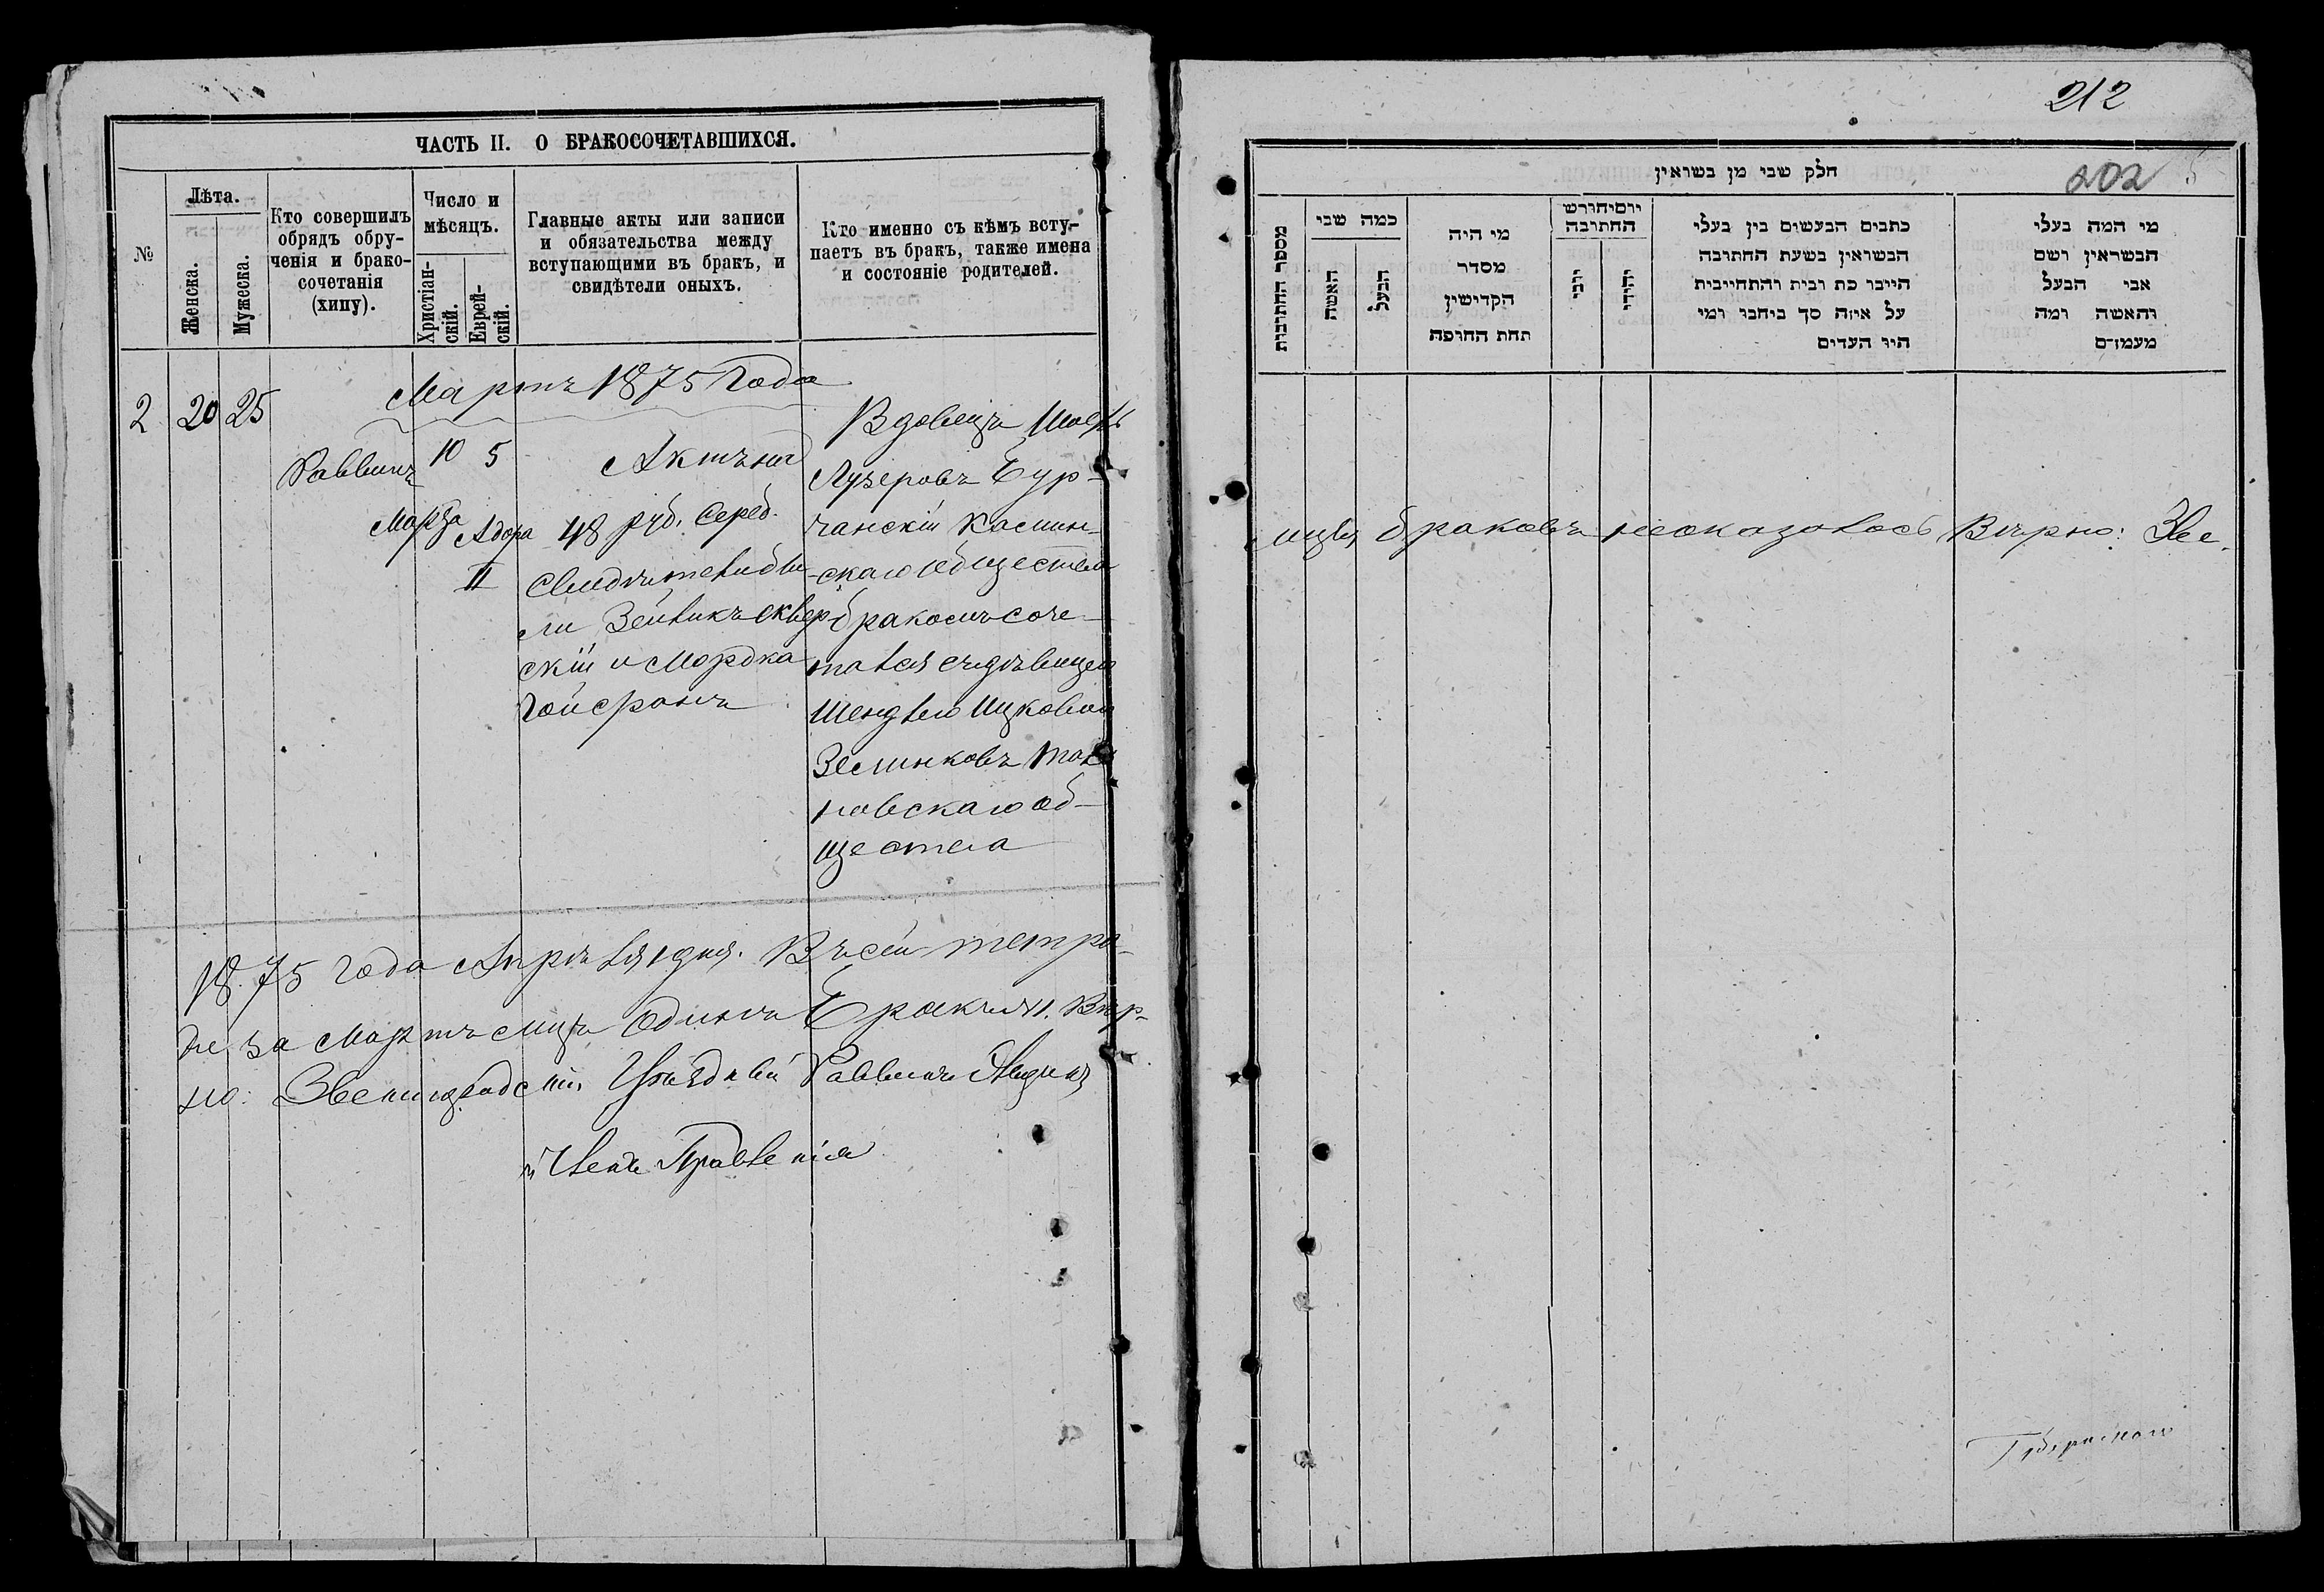 ЧАСТЬ II. О БРАКОСОЧЕТАВШИХСЯ.
№
Лѣта.
Женска.
Мужеска.
Кто совершилъ
обрядъ обру-
ченія и брако-
сочетанія
(хипу).
Число и
мѣсяцъ.
Христіан-
скій.
Еврей-
скій.
Главные акты или записи
и обязательства между
вступающими въ бракъ, и
свидѣтели оныхъ.
Кто именно съ кѣмъ всту-
паетъ въ бракъ, также имена
и состояніе родителей.
Мартъ 1875 Года
2 20 25
Раввинъ
10 5
Марта Адора
II
Актъ на
48 руб. Сереб.
Свидѣтели бы-
ли Зейликъ Сквер-
скій и Мордка
Гойсранъ
Вдовецъ
Лузеровъ Бур-
чанскій
скаго общества
бракомъ соче-
тался съ дѣвицею
Шендлею Ицковой
нов скаго об-
щества
1875 года Апрѣля 1 дня. Въ сей тетра-
де за Мартъ мцъ Одинъ Бракъ №1. Вѣр-
но: Звенигородскій Уѣздный Раввинъ
и Членъ Правленія
212
202
5
חלק שני מן נשואין
מספר החתונות
כמה שני
האשה
הבעל
מי היה
מסדר
הקדישין
תחת החופה
יום וחורש
החתונה
נוצרי
יהודי
כתבים הנעשים בין בעלי
הנשואין בשעת החתונה
היינו כת ובית והתחייבית
על איזה סך ניתנו ומי
היו העדים
מי המה בעלי
הנשואין ושם
אבי הבעל
והאשה ומה
מעמדם
браковъ неоказалось Вѣрно: Зве-